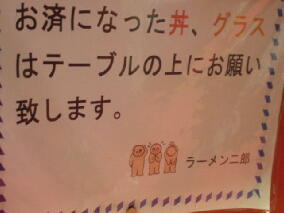 お済になった丼、グラス
はテーブルの上にお願い
致します。
ラーメン二郎